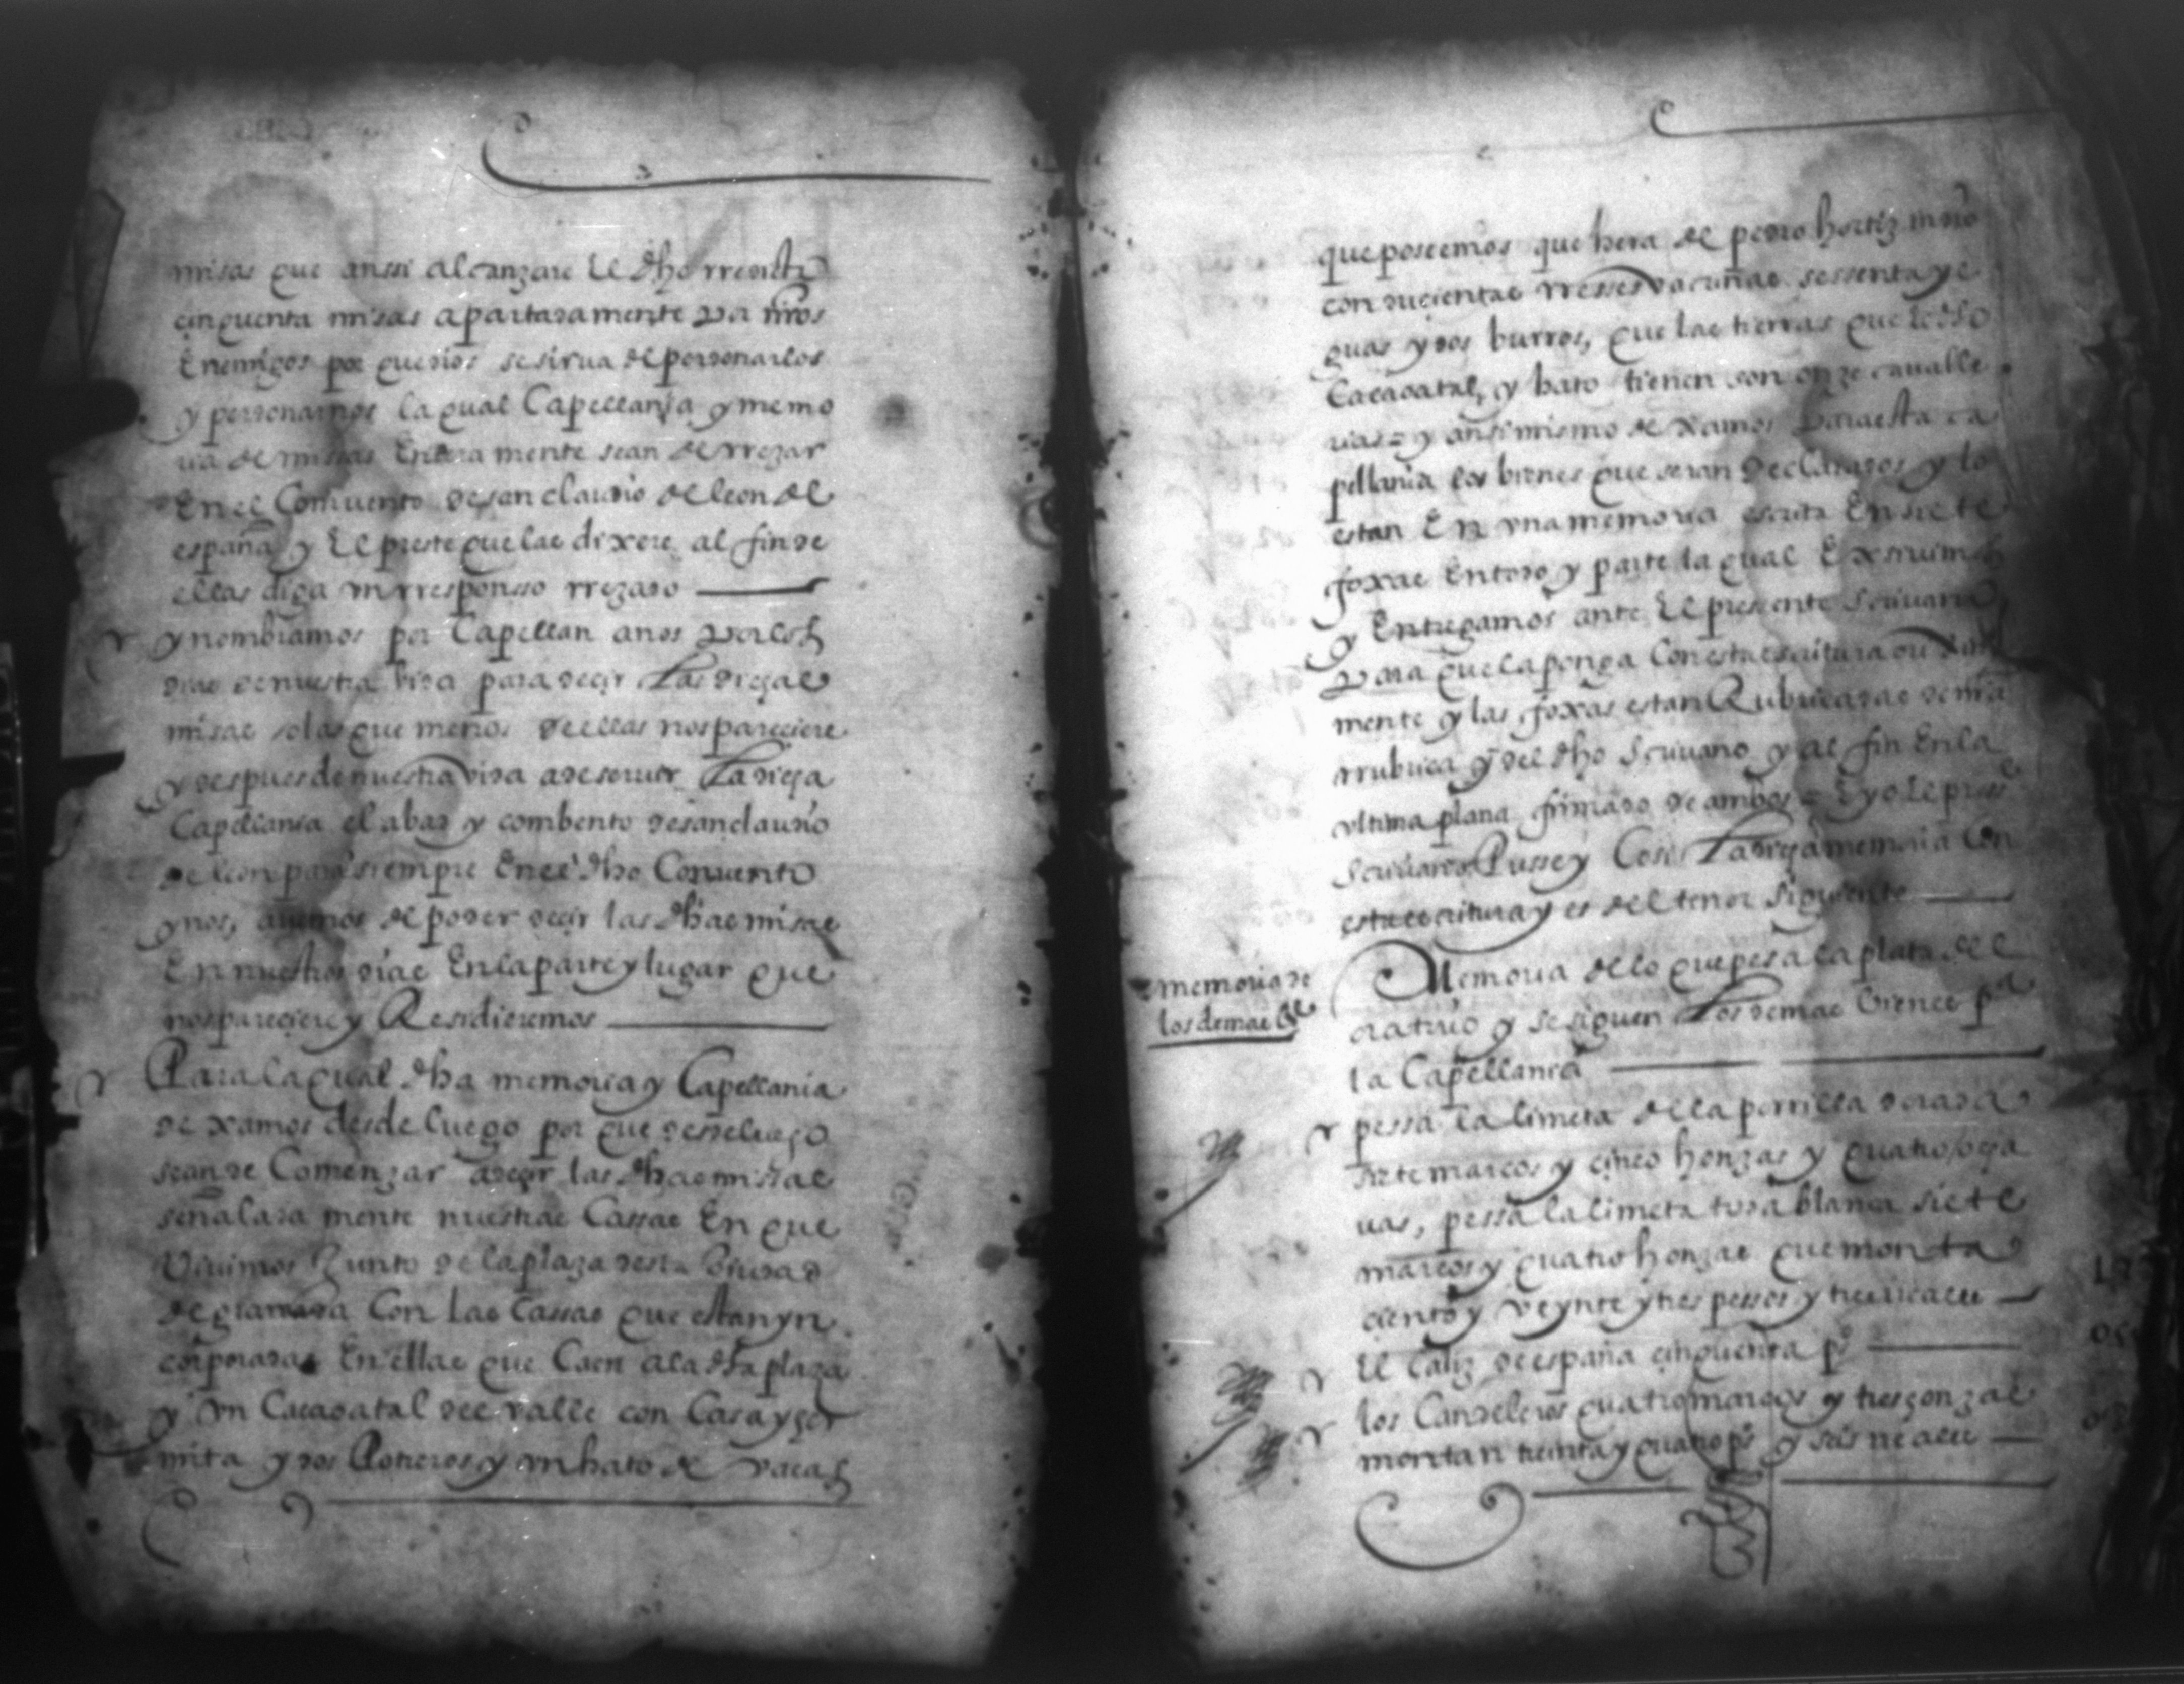 misas que anssi alcanzare El dho rredito
cinquenta misas apartadamente por nros
Enemigos por que dios se sirua de perdonarlos
y perdonarnos la qual Capellania y memo
ria de misas Enteramente sean de rrezar
En el Conuento de san claudio de leon de
españa y El preste que las dixere al fin de
ellas diga un rresponsso rrezado
y nombramos por Capellan a nos por los
dias de nuestra vida para decir las dichas
misas o las que menos de ellas nos pareciere
y despues de nuestra vida a de seruir la dicha
Capellania el abad y combento de san claudio
de leon para siempre En el dho Conuento
y nos auemos de poder decir las dhas misas
En nuestros dias En la parte y lugar que
nos pareciere y Residieremos
Para la qual dha memoria y Capellania
dexamos desde luego por que desde luego
sean de Comenzar a decir las dhas misas
señaladamente nuestras Cassas En que
Viuimos Junto de la plaza desta ciudad
de granada Con las Cassas que estan yn
corporadas En ellas que Caen a la dha plaza
y un Cacaoatal del valle con Casa y
mita y dos Potreros y un hato de vacas
que poseemos que hera de pedro hortiz
con ducientas rresses vacunas sessenta ye
guas y dos burros, que las tierras que el dho
Cacaoatal y hato tienen son onze cavalle
rias y ansimismo dexamos Para esta ca
pellania los bienes que seran declarados y lo
estan En una memoria escrita En siete
foxas En todo y parte la qual Exsiuimos
y Entregamos ante El presente Scriuano
Para que la ponga Con esta escritura
mente y las foxas estan Rubricadas de nra
rrubrica y del dho Scriuano y al fin En la
ultima plana firmado de ambos = E yo El presste
Scriuano Pusse y Cosi la dicha memoria Con
esta escritura y es del tenor siguiente
memoria de
los demas
Memoria de lo que pesa la plata del
oratorio y se siguen los demas bienes pa
la Capellania
pessa la limeta de la porrilla dorada
siete marcos y cinco honzas y quatro ocha
uas, pessa la limeta toda blanca siete
marcos y quatro honzas que montan
ciento y veynte y tres pessos y tres reales
El Caliz de españa cinquenta ps
los Candeleros quatro marcos y tres onzas
montan treinta y quatro ps y seis reales